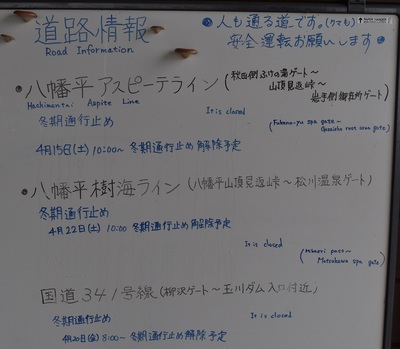 道路情報
Road Information
●人も通る道です。(クマも)
安全運転お願いします●
●八幡平アスピーテライン(秋田側ふけの湯ゲート〜
山頂見返峠〜
岩手側御在所ゲート)
Hachimantai Aspite Line
It is closed
(Fukeno-yu spa gate〜
Gozaisho rest area gate)
冬期通行止め
4月15日(土)10:00〜 冬期通行止め解除予定
●八幡平樹海ライン(八幡平山頂見返峠〜松川温泉ゲート)
冬期通行止め
4月22日(土)10:00 冬期通行止め解除予定
It is closed
(Mikaeri pass〜
Matsukawa spa gate)
国道341号線(柳沢ゲート〜玉川ダム入口付近)
冬期通行止め
It is closed
8:00〜 冬期通行止め解除予定